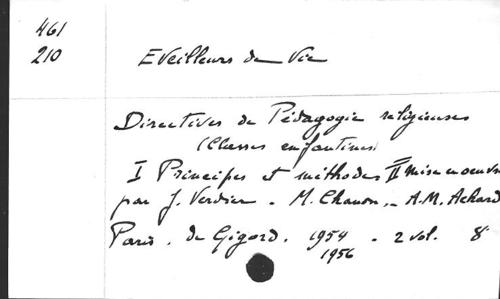 461
210
Eveilleurs de Vie
Directives de Pédagogie religieuses
(Classes enfantines)
I Principes et méthodes II mise en oeuvre
par J. Verdier - M. Chanon - A.M. Achard
Paris. de Gigord. 1954 - 2 vol. 8°
1956